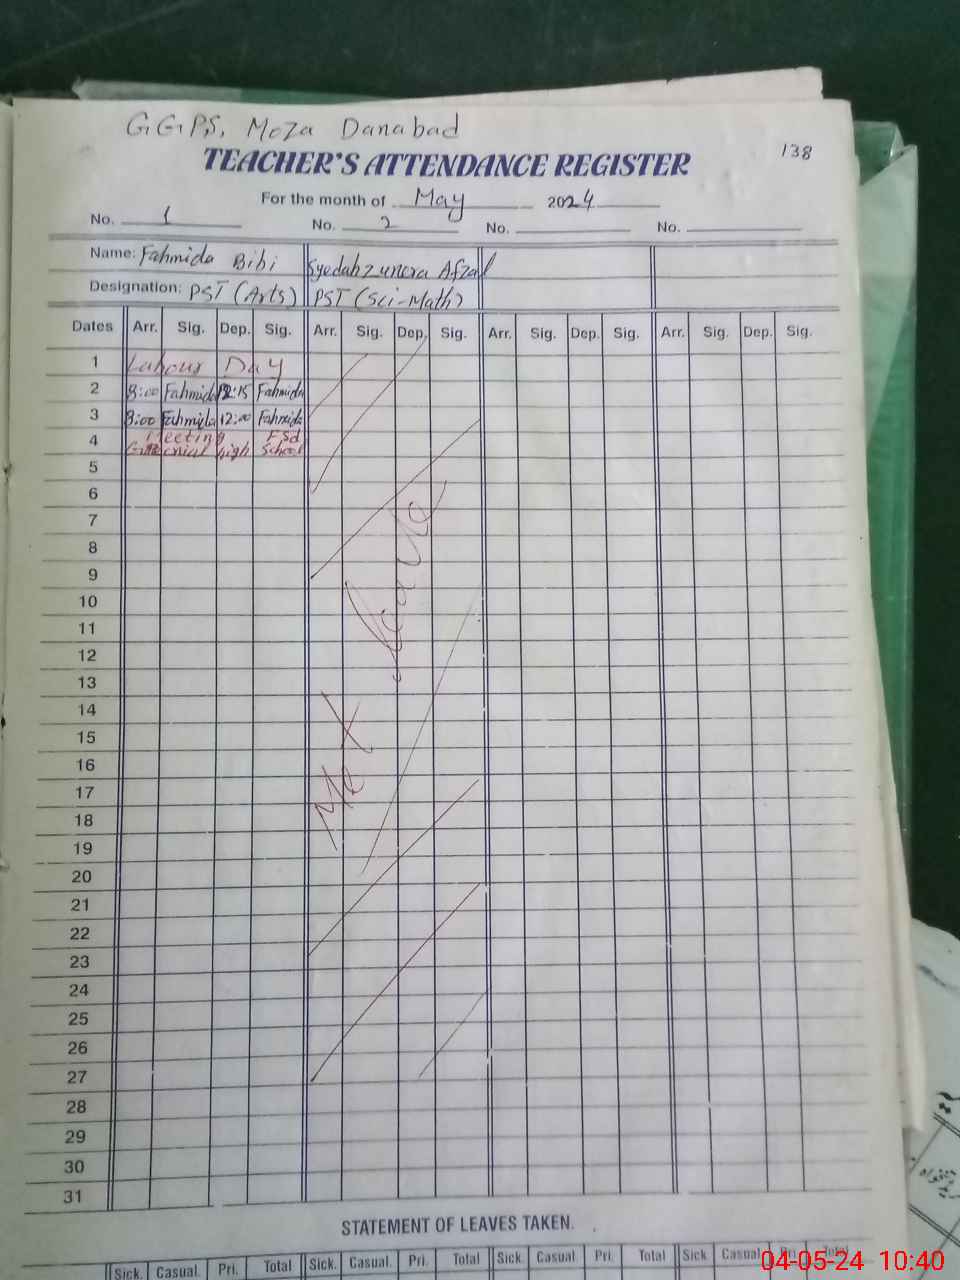 GGPS, Moza Danabad
TEACHER'S ATTENDANCE REGISTER
138
For the month of May 2024
No. 1 No. 2 No. No.
Name: Fahmida Bibi Syedah Zunera Afzal
Designation: PST (Arts) PST (Sci-Math)
Dates Arr. Sig. Dep. Sig. Arr. Sig. Dep. Sig. Arr. Sig. Dep. Sig. Arr. Sig. Dep. Sig.
1 Labour Day
2 8:00 Fahmida 12:15 Fahmida
3 8:00 Fahmida 12:00 Fahmida
4 Meeting FSd
high School
5
6
7
8
9
10
11
12
13
14
15
16
17
18
19
20
21
22
23
24
25
26
27
28
29
30
31
Met leave
STATEMENT OF LEAVES TAKEN.
Sick. Casual. Pri. Total Sick. Casual. Pri. Total Sick. Casual. Pri. Total Sick. Casual Pri. Total
04-05-24 10:40